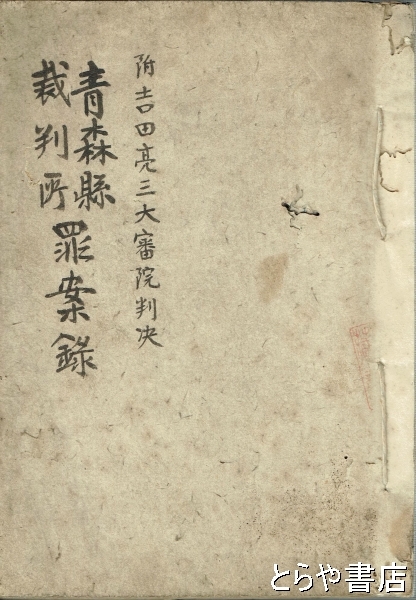 附吉田亮三大審院判决
青森縣
裁判所罪案錄
とらや書店